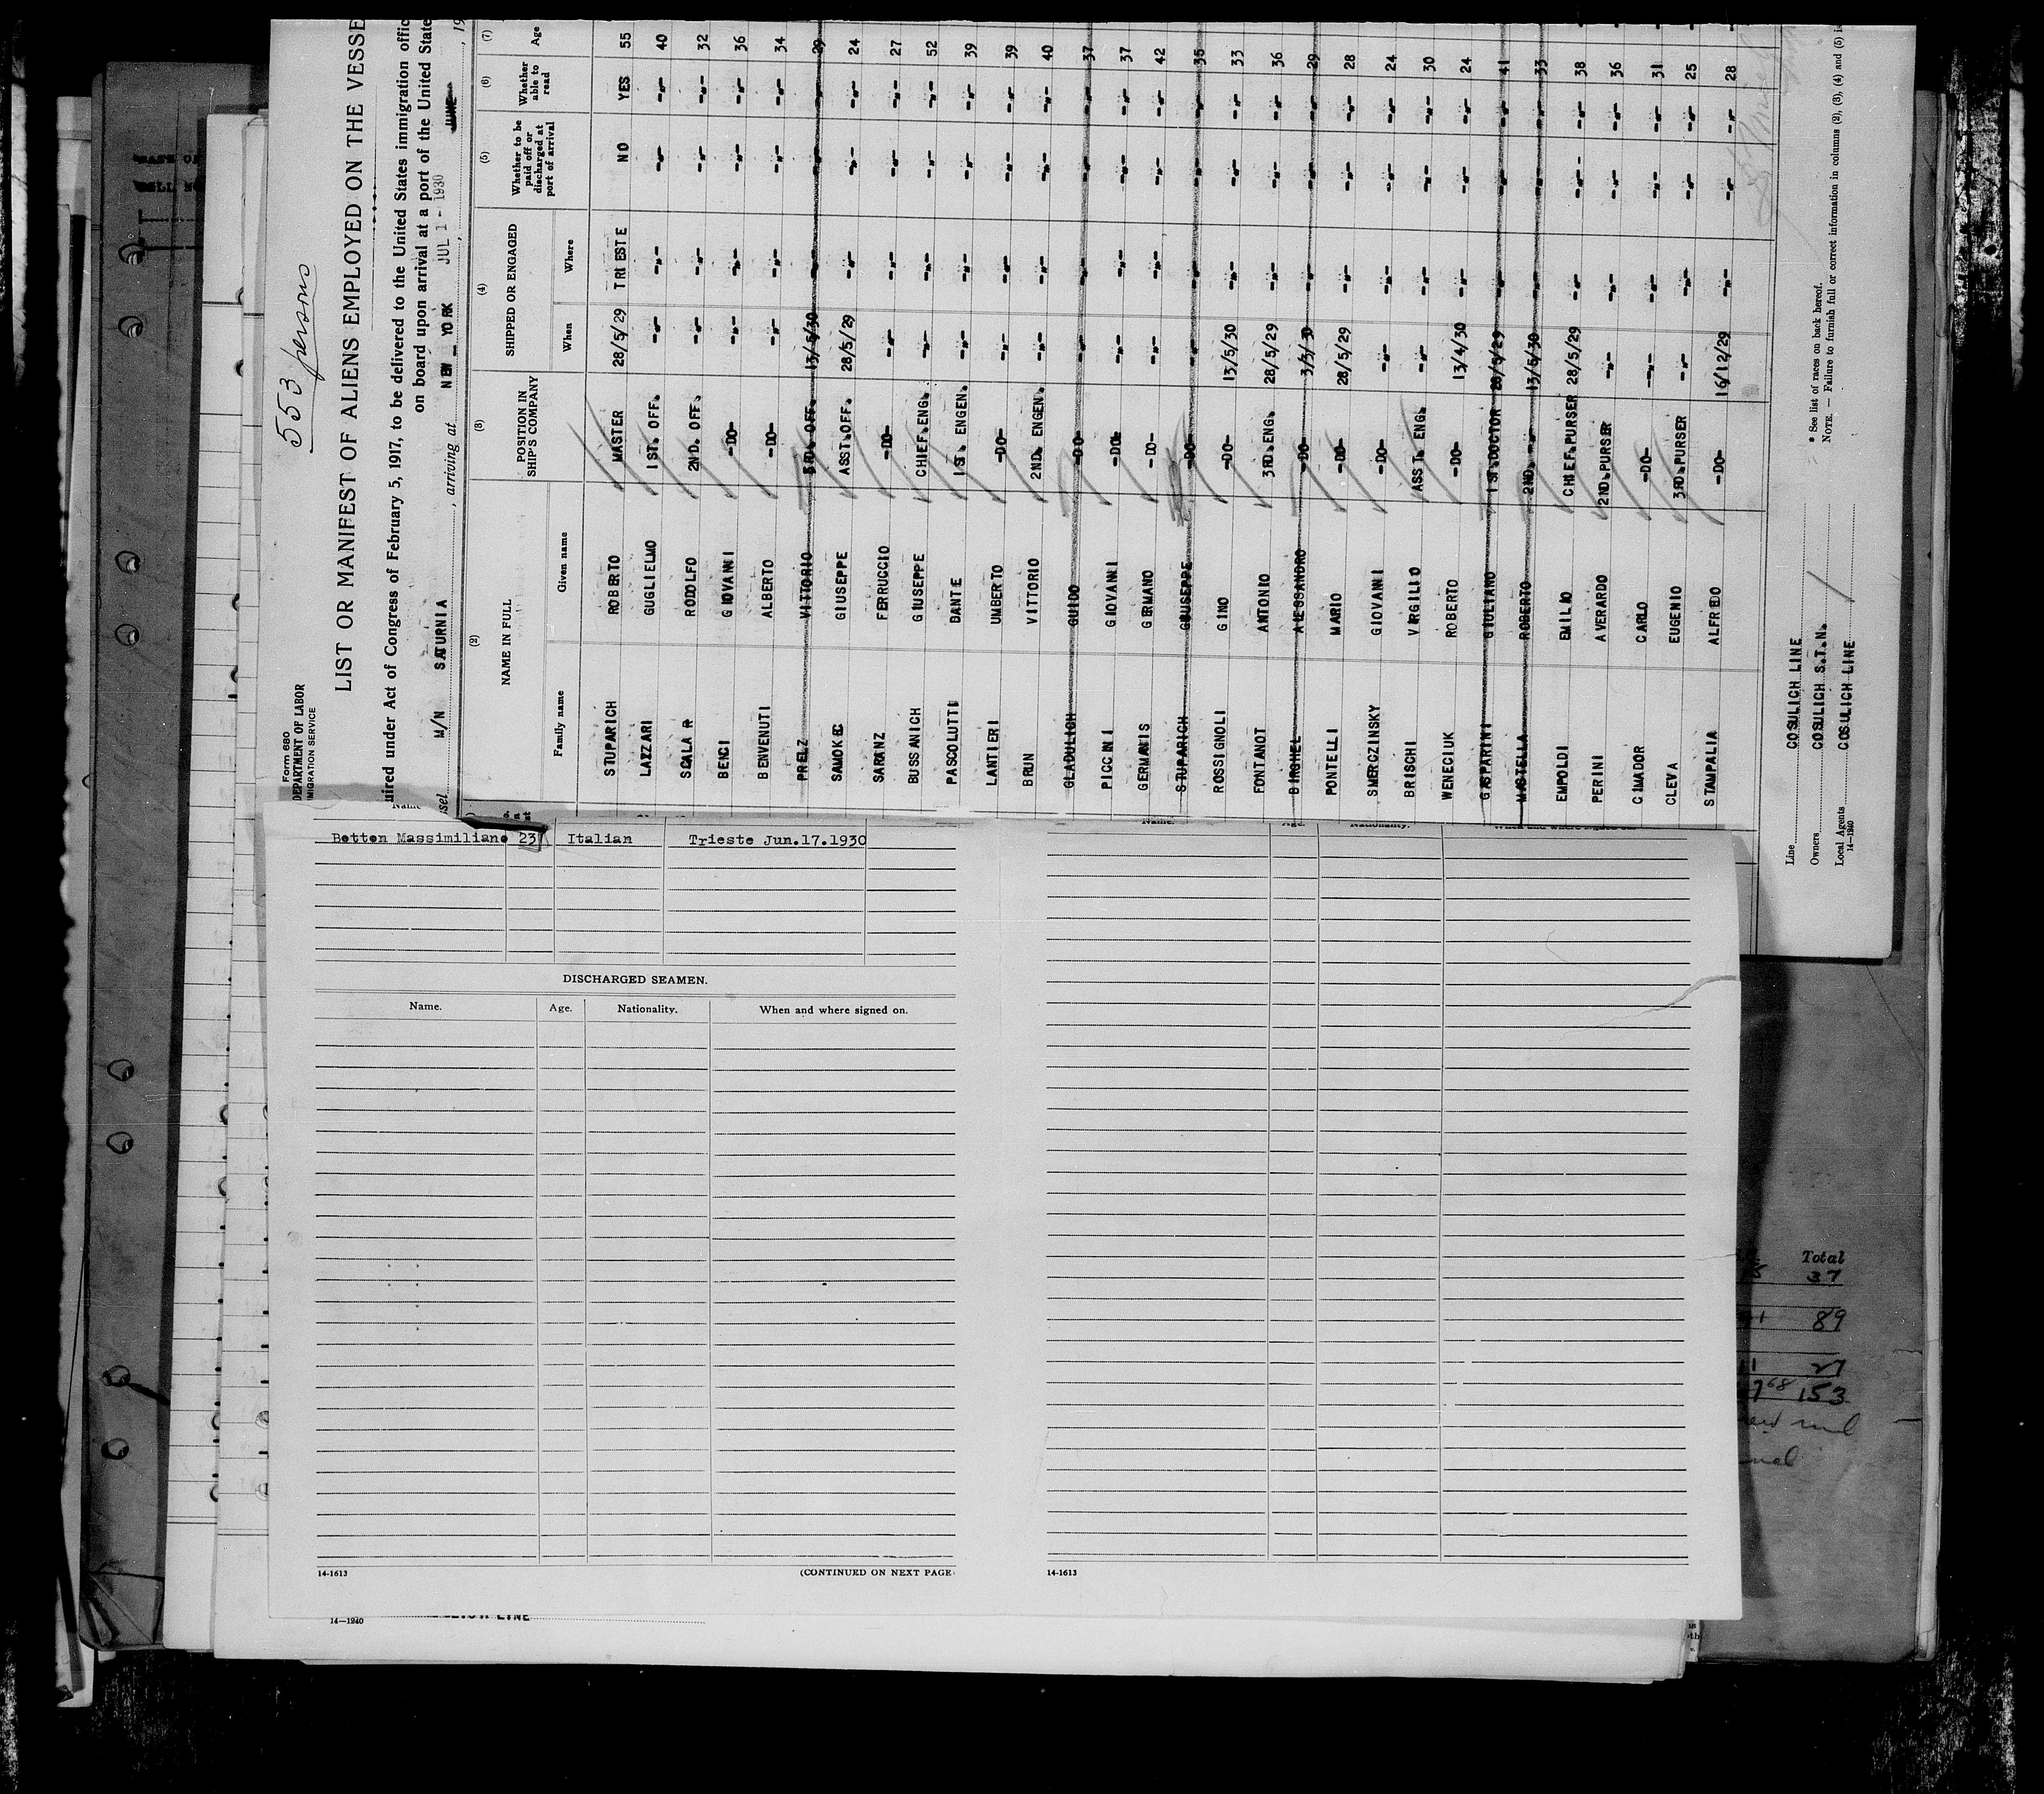 553 persons
Form 680
DEPARTMENT OF LABOR
IMMIGRATION SERVICE
LIST OR MANIFEST OF ALIENS EMPLOYED ON THE VESSE
uired under Act of Congress of February 5, 1917, to be delivered to the United States immigration offic
on board upon arrival at a port of the United State
sel M/N SATURNIA , arriving at NEW - YORK JUL 1 - 1930 JUNE , 19
(2) (3) (4) (5) (6) (7)
NAME IN FULL POSITION IN SHIP'S COMPANY SHIPPED OR ENGAGED Whether to be paid off or discharged at port of arrival Whether able to read Age
Family name Given name When Where
STUPARICH ROBERTO MASTER 28/5/29 TRIESTE NO YES 55
LAZZARI GUGLIELMO 1ST. OFF. -"- -"- -"- -"- 40
SCALA R RODOLFO 2ND. OFF. -"- -"- -"- -"- 32
BENCI GIOVANNI -DO- -"- -"- -"- -"- 36
BENVENUTI ALBERTO -DO- -"- -"- -"- -"- 34
PRELZ VITTORIO 3RD. OFF. 13/5/30 -"- -"- -"- 29
SAMOKEC GIUSEPPE ASST.OFF. 28/5/29 -"- -"- -"- 24
SARENZ FERRUCCIO -DO- -"- -"- -"- -"- 27
BUSSANICH GIUSEPPE CHIEF.ENG. -"- -"- -"- -"- 52
PASCOLUTTI DANTE 1ST. ENGEN. -"- -"- -"- -"- 39
LANTIERI UMBERTO -DO- -"- -"- -"- -"- 39
BRUN VITTORIO 2ND. ENGEN. -"- -"- -"- -"- 40
GLADULICH GUIDO -DO- -"- -"- -"- -"- 37
PICCINI GIOVANNI -DO- -"- -"- -"- -"- 37
GERMANIS GERMANO -DO- -"- -"- -"- -"- 42
STUPARICH GIUSEPPE -DO- -"- -"- -"- -"- 35
ROSSIGNOLI GINO -DO- 13/5/30 -"- -"- -"- 33
FONTANOT ANTONIO 3RD.ENG. 28/5/29 -"- -"- -"- 36
BIRGHEL ALESSANDRO -DO- 3/3/30 -"- -"- -"- 29
PONTELLI MARIO -DO- 28/5/29 -"- -"- -"- 28
SMERCZINSKY GIOVANNI -DO- -"- -"- -"- -"- 24
BRISCHI VIRGILIO ASST. ENG. -"- -"- -"- -"- 30
WENECIUK ROBERTO -DO- 13/4/30 -"- -"- -"- 24
GASPARINI GIULIANO 1ST.DOCTOR 28/5/29 -"- -"- -"- 41
MASTELLA ROBERTO 2ND. -"- 13/5/30 -"- -"- -"- 33
EMPOLDI EMILIO CHIEF.PURSER 28/5/29 -"- -"- -"- 38
PERINI AVERARDO 2ND.PURSER -"- -"- -"- -"- 36
CIMADOR CARLO -DO- -"- -"- -"- -"- 31
CLEVA EUGENIO 3RD.PURSER -"- -"- -"- -"- 25
STAMPALIA ALFREDO -DO- 16/12/29 -"- -"- -"- 28
Line COSULICH LINE
Owners COSULICH S.T.N.
Local Agents COSULICH LINE
14-1240
* See list of races on back hereof.
NOTE. — Failure to furnish full or correct information in columns (2), (3), (4) and (5) i
Betton Massimiliano 23 Italian Trieste Jun.17.1930
DISCHARGED SEAMEN.
Name. Age. Nationality. When and where signed on.
14-1613 (CONTINUED ON NEXT PAGE
14-1613
14-1240
Total
37
89
27
153